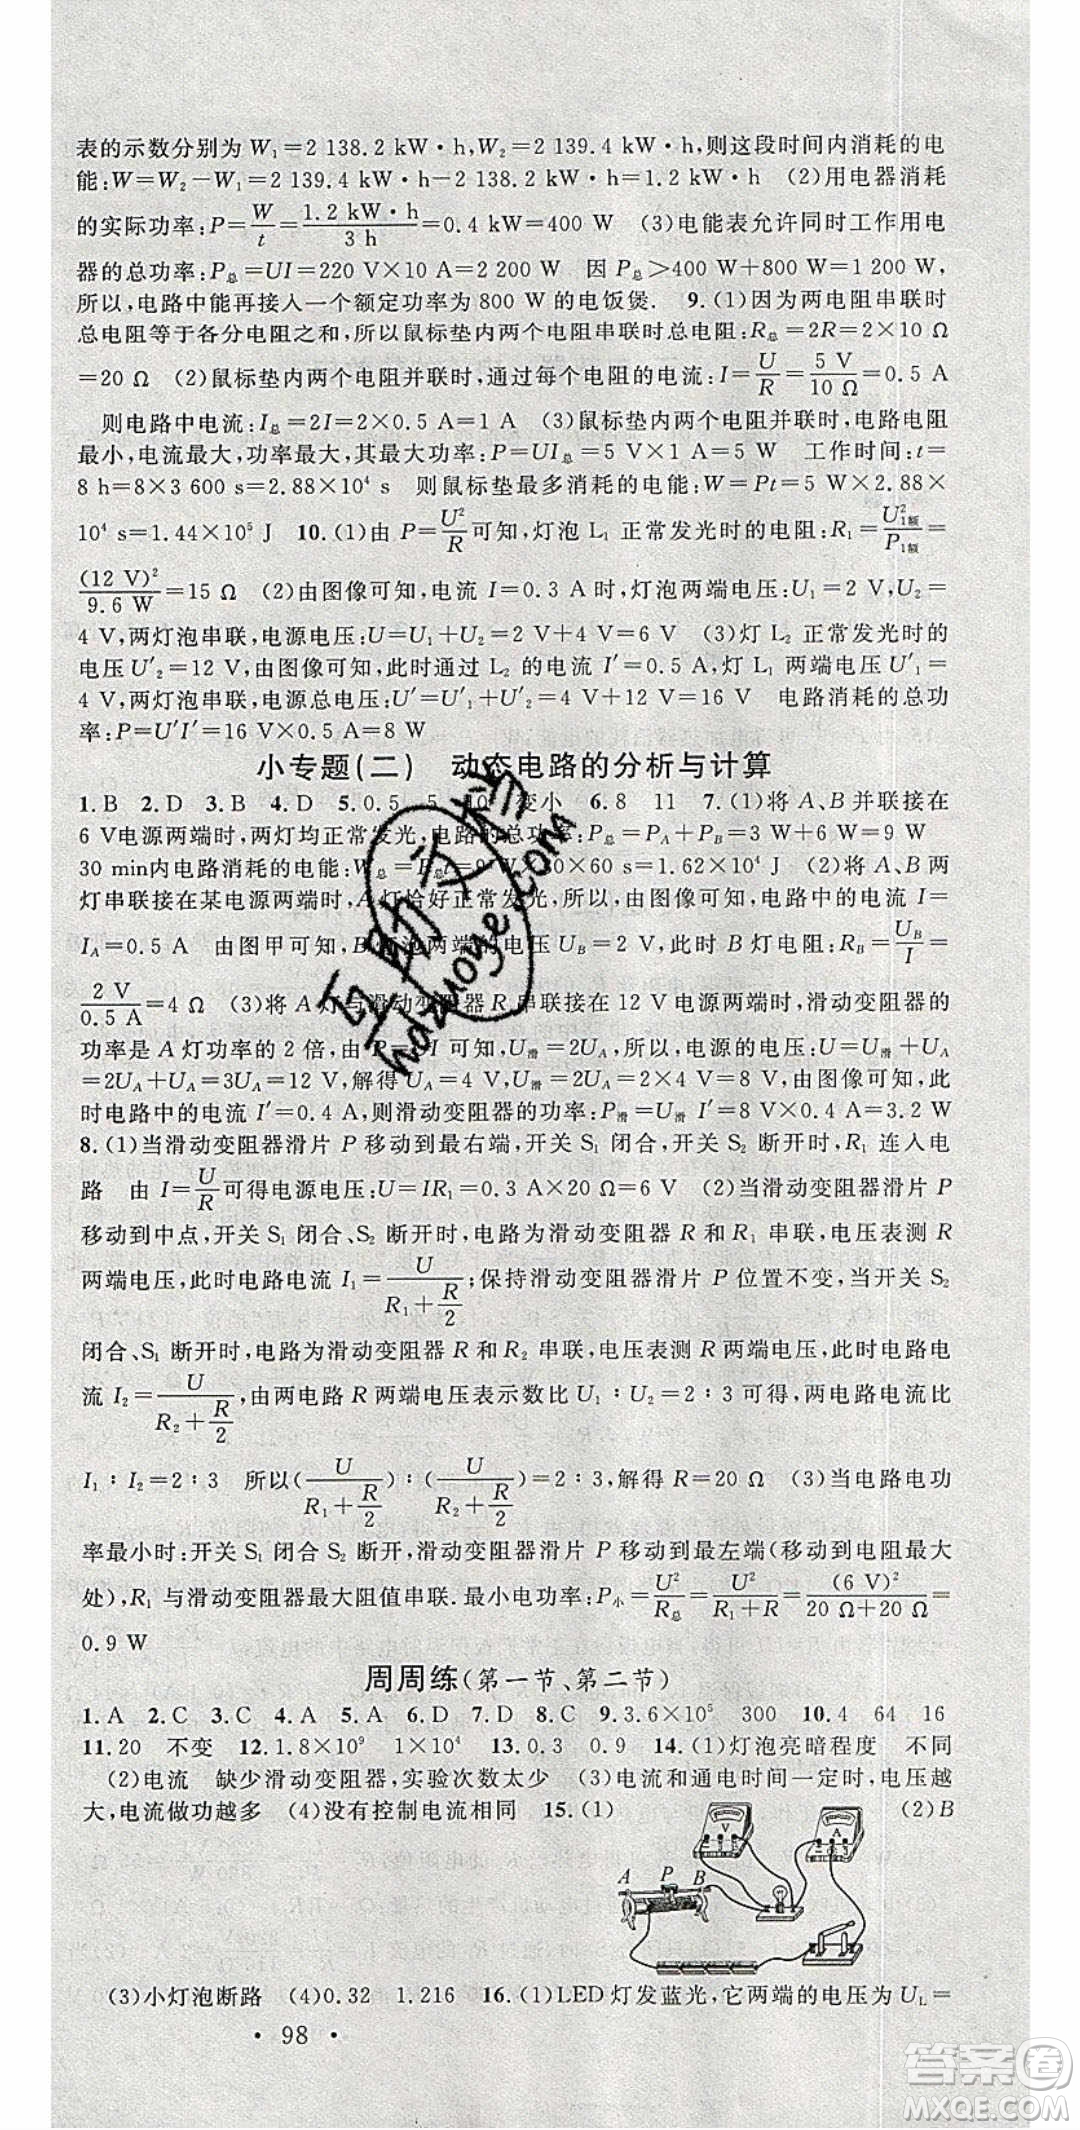 表的示数分别为 W₁=2 138.2 kW·h,W₂=2 139.4 kW·h,则这段时间内消耗的电
能:W=W₂-W₁=2 139.4 kW·h-2 138.2 kW·h=1.2 kW·h (2)用电器消耗
的实际功率:P=W/t=1.2 kW·h/3 h=0.4 kW=400 W (3)电能表允许同时工作用电
器的总功率:P总=UI=220 V×10 A=2 200 W 因 P总>400 W+800 W=1 200 W,
所以,电路中能再接入一个额定功率为 800 W 的电饭煲. 9.(1)因为两电阻串联时
总电阻等于各分电阻之和,所以鼠标垫内两个电阻串联时总电阻:R总=2R=2×10 Ω
=20 Ω (2)鼠标垫内两个电阻并联时,通过每个电阻的电流:I=U/R=5 V/10 Ω=0.5 A
则电路中电流:I总=2I=2×0.5 A=1 A (3)鼠标垫内两个电阻并联时,电路电阻
最小,电流最大,功率最大,其最大功率:P=UI总=5 V×1 A=5 W 工作时间:t=
8 h=8×3 600 s=2.88×10⁴ s 则鼠标垫最多消耗的电能:W=Pt=5 W×2.88×
10⁴ s=1.44×10⁵ J 10.(1)由 P=U²/R 可知,灯泡 L₁ 正常发光时的电阻:R₁=U²₁额/P₁额=
(12 V)²/9.6 W=15 Ω (2)由图像可知,电流 I=0.3 A 时,灯泡两端电压:U₁=2 V,U₂=
4 V,两灯泡串联,电源电压:U=U₁+U₂=2 V+4 V=6 V (3)灯 L₂ 正常发光时的
电压 U′₂=12 V,由图像可知,此时通过 L₂ 的电流 I′=0.5 A,灯 L₁ 两端电压 U′₁=
4 V,两灯泡串联,电源总电压:U′=U′₁+U′₂=4 V+12 V=16 V 电路消耗的总功
率:P=U′I′=16 V×0.5 A=8 W
小专题(二) 动态电路的分析与计算
1.B 2.D 3.B 4.D 5.0.5 5 10 变小 6.8 11 7.(1)将 A、B 并联接在
6 V电源两端时,两灯均正常发光,电路的总功率:P总=PA+PB=3 W+6 W=9 W
30 min内电路消耗的电能:W总=P总t=9 W×30×60 s=1.62×10⁴ J (2)将 A、B 两
灯串联接在某电源两端时,A 灯恰好正常发光,由图像可知,电路中的电流 I=
IA=0.5 A 由图甲可知,B 灯泡两端的电压 UB=2 V,此时 B 灯电阻:RB=UB/I=
2 V/0.5 A=4 Ω (3)将 A 灯与滑动变阻器 R 串联接在 12 V 电源两端时,滑动变阻器的
功率是 A 灯功率的 2 倍,由 P=UI 可知,U滑=2UA,所以,电源的电压:U=U滑+UA
=2UA+UA=3UA=12 V,解得 UA=4 V,U滑=2UA=2×4 V=8 V,由图像可知,此
时电路中的电流 I′=0.4 A,则滑动变阻器的功率:P滑=U滑I′=8 V×0.4 A=3.2 W
8.(1)当滑动变阻器滑片 P 移动到最右端,开关 S₁ 闭合,开关 S₂ 断开时,R₁ 连入电
路 由 I=U/R可得电源电压:U=IR₁=0.3 A×20 Ω=6 V (2)当滑动变阻器滑片 P
移动到中点,开关 S₁ 闭合、S₂ 断开时,电路为滑动变阻器 R 和 R₁ 串联,电压表测 R
两端电压,此时电路电流 I₁=U/(R₁+R/2);保持滑动变阻器滑片 P 位置不变,当开关 S₂
闭合、S₁ 断开时,电路为滑动变阻器 R 和 R₂ 串联,电压表测 R 两端电压,此时电路电
流 I₂=U/(R₂+R/2),由两电路 R 两端电压表示数比 U₁∶U₂=2∶3 可得,两电路电流比
I₁∶I₂=2∶3 所以(U/(R₁+R/2))∶(U/(R₂+R/2))=2∶3,解得 R=20 Ω (3)当电路电功
率最小时:开关 S₁ 闭合 S₂ 断开,滑动变阻器滑片 P 移动到最左端(移动到阻值最大
处),R₁ 与滑动变阻器最大阻值串联.最小电功率:P小=U²/R总=U²/(R₁+R)=(6 V)²/(20 Ω+20 Ω)=
0.9 W
周周练(第一节、第二节)
1.A 2.C 3.C 4.A 5.A 6.D 7.D 8.C 9.3.6×10⁵ 300 10.4 64 16
11.20 不变 12.1.8×10⁹ 1×10⁴ 13.0.3 0.9 14.(1)灯泡亮暗程度 不同
(2)电流 缺少滑动变阻器,实验次数太少 (3)电流和通电时间一定时,电压越
大,电流做功越多 (4)没有控制电流相同 15.(1) (2)B
V A
A P B
(3)小灯泡断路 (4)0.32 1.216 16.(1)LED 灯发蓝光,它两端的电压为 UL=
· 98 ·
互助文档
hdzuoye.com
答案圈
MXQE.COM